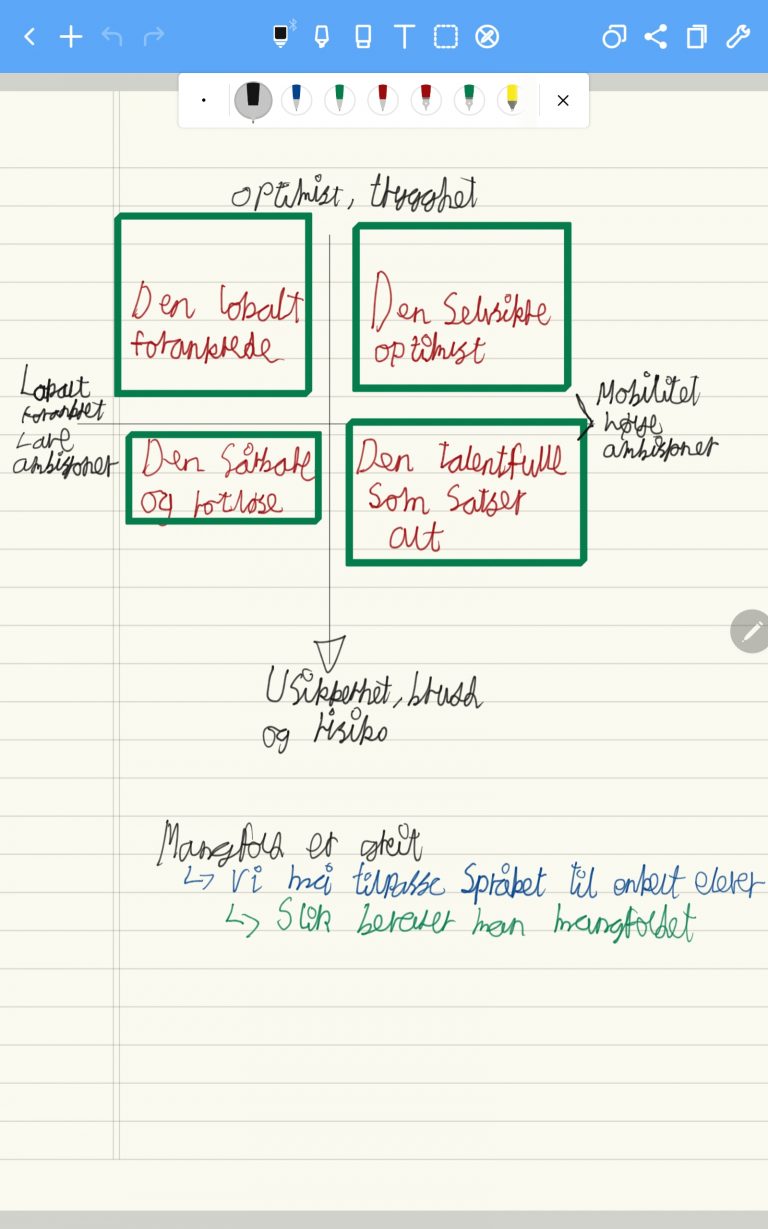 optimist, trygghet
Den lokalt
forankrede
Den Selvsikre
optimist
Lokalt
forankret
Lave
ambisjoner
Mobilitet
høye
ambisjoner
Den Sårbare
og rotløse
Den talentfulle
som satser
alt
Usikkerhet, brudd
og risiko
Mangfold er greit
↳ Vi må tilpasse Språket til enkelt elever
↳ Slik bevarer man mangfoldet